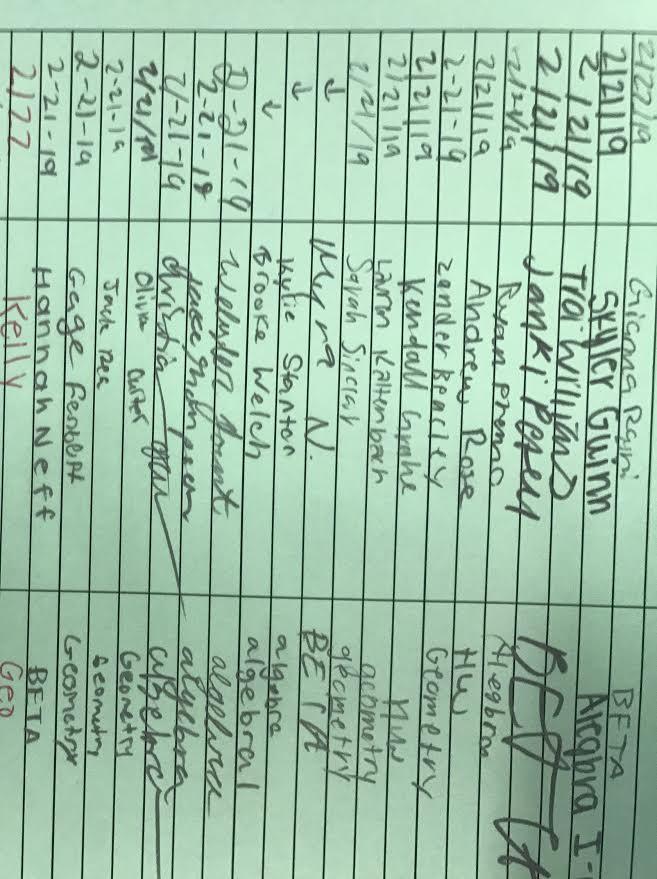 2/22/19 Gianna BETA
2/21/19 Skyler Guinn Alegbra I-
2/21/19 Trai Williams
2/21/19 Janki Posey BETA
2/21/19 Ryan Alegbra
2/21/19 Andrew Rose HW
2-21-19 zander Beasley Geometry
2/21/19 Kendall HW
2/21/19 Kaltenbach geometry
2/21/19 Sarah Sinclair geometry
↓ Myra N. BETA
↓ Kylie Stanton algebra
↓ Brooke Welch algebra 1
2-21-19 algebra
2-21-19 algebra
2/-21-19 algebra
2/21/19 Olivia Carter Geometry
2-21-19 Jack Rea Geometry
2-21-19 Gage Geometry
2-21-19 Hannah Neff BETA
2/22 Kelly Geo